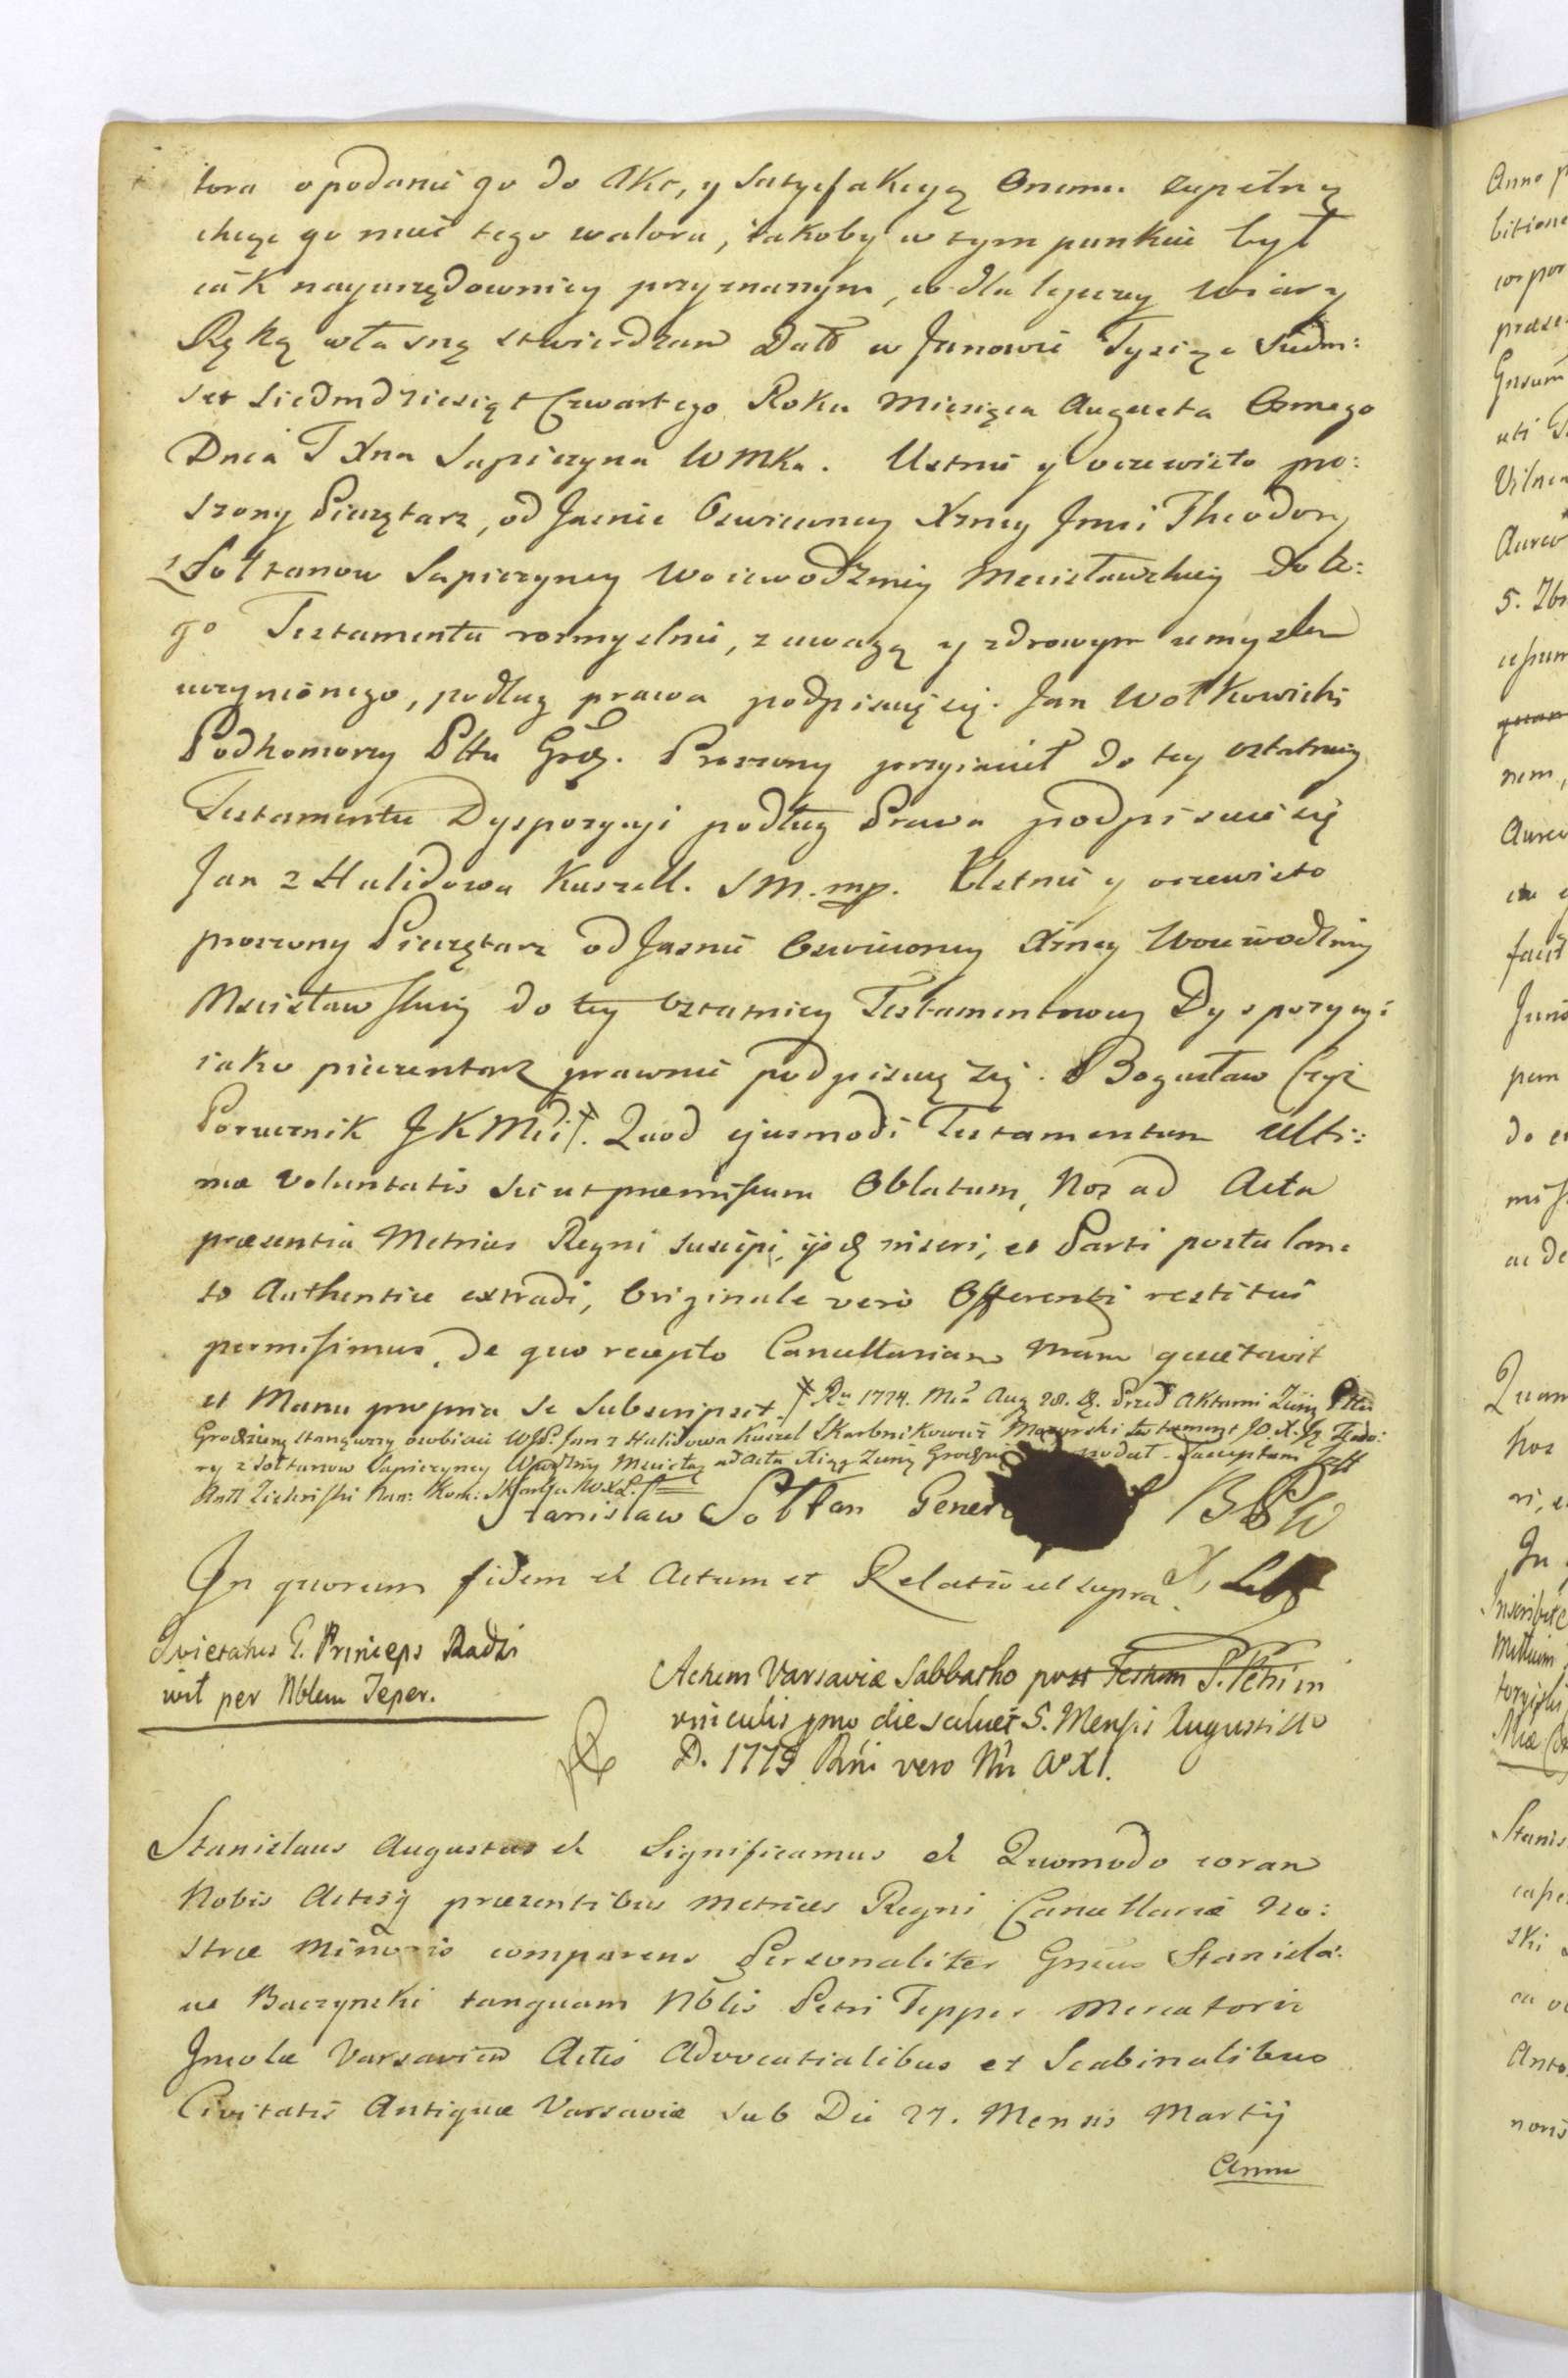 tora o podanie go do Akt, y satysfakcyą Onemu zupełną
chcąc go mieć tego waloru, iakoby w tym punkcie był
iak nayurzędowniey przyznanym, w dla lepszey wiary
Ręką własną stwierdzam Datt w Janowie Tysiąc Siedm:
set Siedmdziesiąt Czwartego Roku Miesiąca Augusta Osmego
Dnia T Xna Sapieżyna WMKa. Ustnie y oczewisto pro:
szony Pieczętarz, od Jaśnie Oswieconey Xzney Jmci Theodory
z Sołtanow Sapieżyney Woiewodziney Mscisławskiey do te:
go Testamentu rozmyslnie, z uwagą y zdrowym umysłem
uczynionego, podług prawa podpisuię się. Jan Wołkowicki
Podkomorzy Pttu Grodz. Proszony przyiaciel do tey ostatniey
Testamentu Dyspozycyi podług Prawa podpisuie się
Jan z Halidowa Kuszell. S M. mp. Ustnie y oczewisto
proszony Pieczętarz od Jasnie Oswieconey Xzney Woiewodziney
Mscisławskiey do tey Ostatniey Testamentowey Dyspozycyi
iako pieczentarz prawnie podpisuię się. Bogusław Czyż
Porucznik JKMci ⌿. Quod ejusmodi Testamentum ulti:
mæ voluntatis sicut præmissum Oblatum, Nos ad Acta
præsentia Metrices Regni suscipi, ijsq inseri, et Parti postulan:
ti Authentice extradi, Originale vero Offerenti restitui
permisimus, de quo recepto Cancellariam Nram quietavit
et Manu propria se subscripsit. ⌿ Ru 1774. Mca Aug 28. d. Przed Aktami Ziem Pttu
Grodzieńg stanąwszy osobiscie WJP. Jan z Halidowa Kuszel Skarbnikowicz Mozyrski testament J.O.X. Jey Teodo:
ry z Sołtanow Sapieżyney Wwodziny Mscisław ad Acta Xiąg Ziem Grodzień podał - Susceptum
Stanisław Sołtan Gener
In quorum fidem et Actum et Relatio ut supra.
Quietatus G. Princeps Radzi
wił per Nblem Teper.
Actum Varsaviæ Sabbatho post Festum S. Petri in
vinculis pmo die scilicet 5. Mensis Augusti Ao
D. 1775 Rni vero Nri Ao XI.
Stanislaus Augustus et Significamus et Quomodo coram
Nobis Actisq præsentibus Metrices Regni Cancellariæ No:
stræ Minoris comparens Personaliter Gnsus Stanisla:
us Baczynski tanquam Nblis Petri Tepper Mercatoris
Incolæ Varsavien Actis Advocatialibus et Scabinalibus
Civitatis Antiquæ Varsaviæ sub Die 27. Mensis Martij
Anno